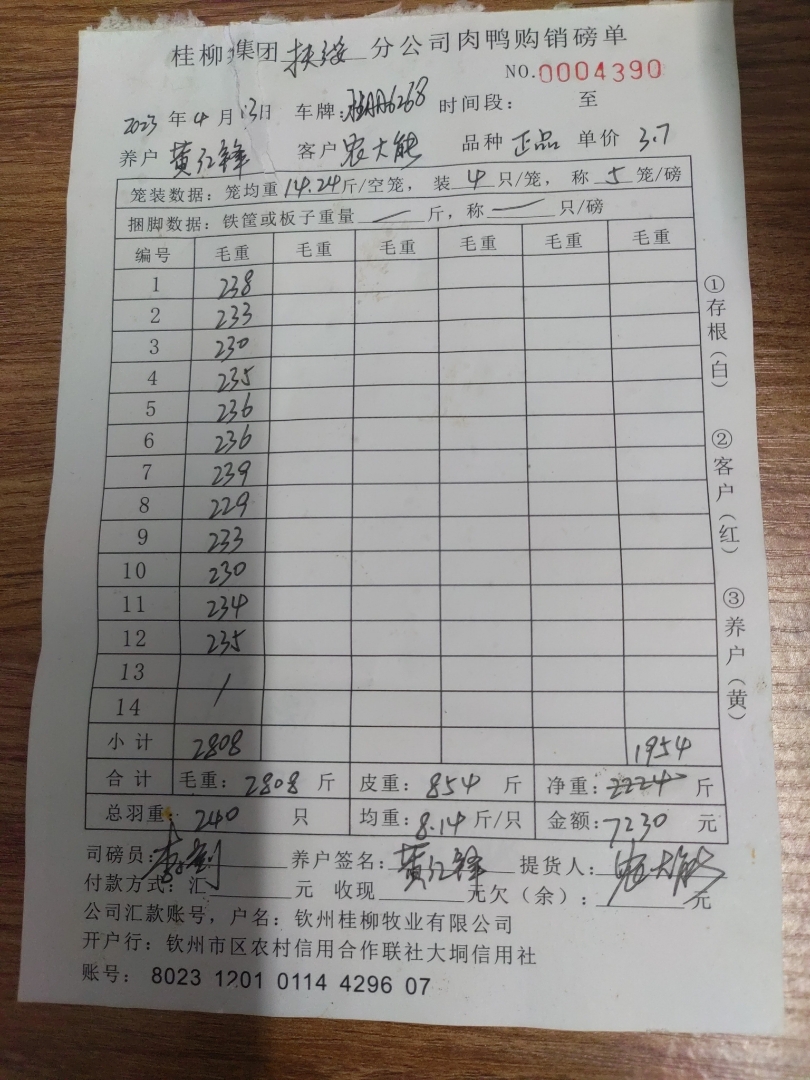 桂柳集团 扶绥 分公司肉鸭购销磅单
NO.0004390
2023 年 4 月 13日 车牌: 6268 时间段: 至
养户 黄红锋 客户 农大能 品种 正品 单价 3.7
笼装数据: 笼均重 14.24 斤/空笼, 装 4 只/笼, 称 5 笼/磅
捆脚数据: 铁筐或板子重量 — 斤, 称 — 只/磅
编号 毛重 毛重 毛重 毛重 毛重 毛重
1 238
2 233
3 230
4 235
5 236
6 236
7 239
8 229
9 233
10 230
11 234
12 235
13
14 /
小计 2808 1954
合计 毛重: 2808 斤 皮重: 854 斤 净重: 2224 斤
总羽重: 240 只 均重: 8.14 斤/只 金额: 7230 元
司磅员: 养户签名: 黄红锋 提货人: 农大能
付款方式: 汇 元 收现 元欠(余): 元
公司汇款账号, 户名: 钦州桂柳牧业有限公司
开户行: 钦州市区农村信用合作联社大垌信用社
账号: 8023 1201 0114 4296 07
①存根(白) ②客户(红) ③养户(黄)